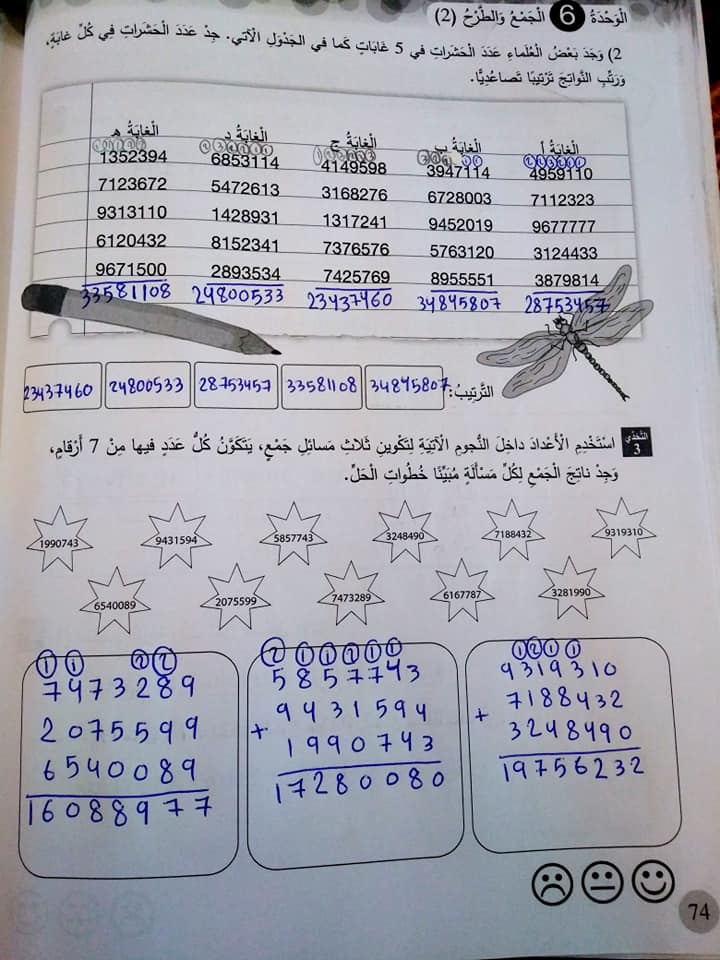 الْوَحْدَةُ 6 الْجَمْعُ وَالطَّرْحُ (2)
2) وَجَدَ بَعْضُ الْعُلَماءِ عَدَدَ الْحَشَراتِ في 5 غاباتٍ كَما في الجَدْوَلِ الْآتي. جِدْ عَدَدَ الْحَشَراتِ فِي كُلِّ غابَةٍ،
وَرَتِّبِ النَّواتِجَ تَرْتيبًا تَصاعُدِيًّا.
الْغابَةُ أ الْغابَةُ ب الْغابَةُ ج الْغابَةُ د الْغابَةُ هـ
4959110 3947114 4149598 6853114 1352394
7112323 6728003 3168276 5472613 7123672
9677777 9452019 1317241 1428931 9313110
3124433 5763120 7376576 8152341 6120432
3879814 8955551 7425769 2893534 9671500
28753457 34845807 23437460 24800533 33581108
التَّرتيبُ: 34845807 33581108 28753457 24800533 23437460
التَّحَدّي 3 اسْتَخْدِمِ الْأَعْدادَ داخِلَ النُّجومِ الْآتِيَةِ لِتَكْوينِ ثَلاثِ مَسائِلِ جَمْعٍ، يَتَكَوَّنُ كُلُّ عَدَدٍ فيها مِنْ 7 أَرْقامٍ،
وَجِدْ ناتِجَ الْجَمْعِ لِكُلِّ مَسْأَلَةٍ مُبَيِّنًا خُطُواتِ الْحَلِّ.
9319310 7188432 3248490 5857743 9431594 1990743
3281990 6167787 7473289 2075599 6540089
9319310
7188432
+
3248490
19756232
5857743
9431594
+
1990743
17280080
7473289
2075599
6540089
16088977
74